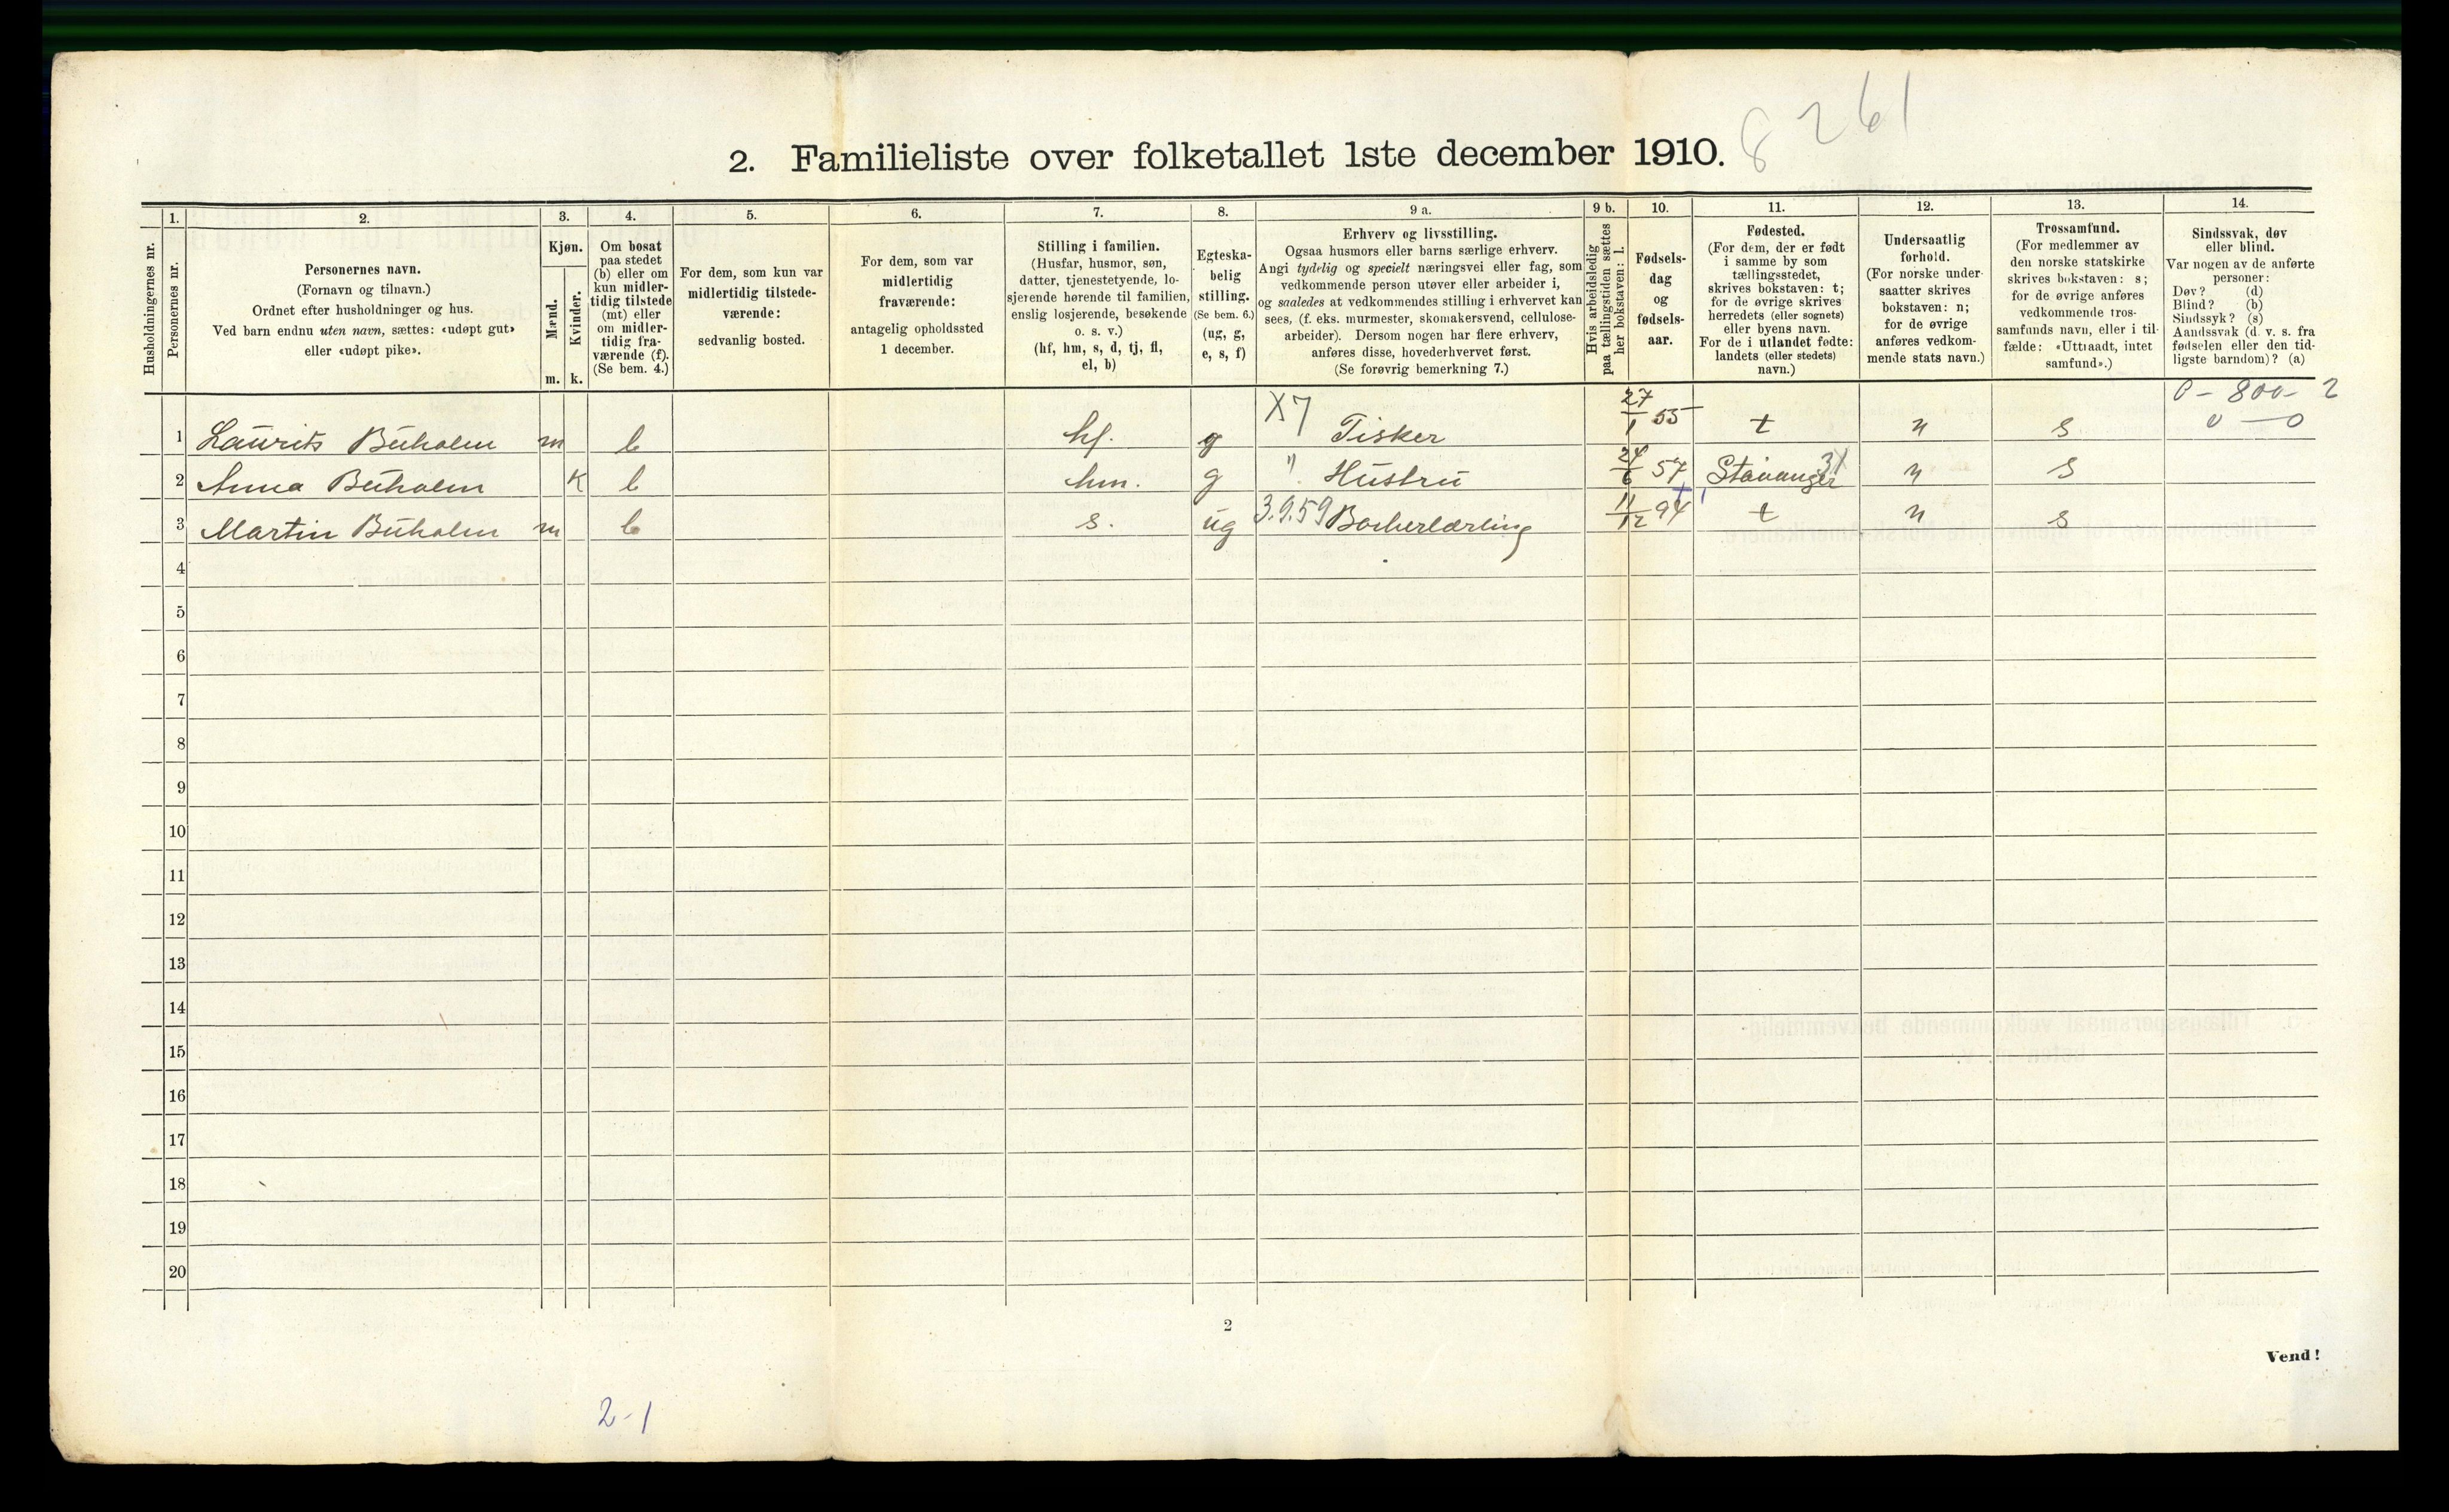 8261
2. Familieliste over folketallet 1ste december 1910.
Husholdningernes nr.
1. Personernes nr.
2. Personernes navn.
(Fornavn og tilnavn.)
Ordnet efter husholdninger og hus.
Ved barn endnu uten navn, sættes: «udøpt gut»
eller «udøpt pike».
3. Kjøn.
Mænd. Kvinder.
m. k.
4. Om bosat
paa stedet
(b) eller om
kun midler-
tidig tilstede
(mt) eller
om midler-
tidig fra-
værende (f).
(Se bem. 4.)
5. For dem, som kun var
midlertidig tilstede-
værende:
sedvanlig bosted.
6. For dem, som var
midlertidig
fraværende:
antagelig opholdssted
1 december.
7. Stilling i familien.
(Husfar, husmor, søn,
datter, tjenestetyende, lo-
sjerende hørende til familien,
enslig losjerende, besøkende
o. s. v.)
(hf, hm, s, d, tj, fl,
el, b)
8. Egteska-
belig
stilling.
(Se bem. 6.)
(ug, g,
e, s, f)
9 a. Erhverv og livsstilling.
Ogsaa husmors eller barns særlige erhverv.
Angi tydelig og specielt næringsvei eller fag, som
vedkommende person utøver eller arbeider i,
og saaledes at vedkommendes stilling i erhvervet kan
sees, (f. eks. murmester, skomakersvend, cellulose-
arbeider). Dersom nogen har flere erhverv,
anføres disse, hovederhvervet først.
(Se forøvrig bemerkning 7.)
9 b. Hvis arbeidsledig
paa tællingstiden sættes
her bokstaven: l.
10. Fødsels-
dag
og
fødsels-
aar.
11. Fødested.
(For dem, der er født
i samme by som
tællingsstedet,
skrives bokstaven: t;
for de øvrige skrives
herredets (eller sognets)
eller byens navn.
For de i utlandet fødte:
landets (eller stedets)
navn.)
12. Undersaatlig
forhold.
(For norske under-
saatter skrives
bokstaven: n;
for de øvrige
anføres vedkom-
mende stats navn.)
13. Trossamfund.
(For medlemmer av
den norske statskirke
skrives bokstaven: s;
for de øvrige anføres
vedkommende tros-
samfunds navn, eller i til-
fælde: «Uttraadt, intet
samfund».)
14. Sindssvak, døv
eller blind.
Var nogen av de anførte
personer:
Døv? (d)
Blind? (b)
Sindssyk? (s)
Aandssvak (d. v. s. fra
fødselen eller den tid-
ligste barndom)? (a)
0 - 800 - 2
1 Laurits Buholm m b hf. g X7 Tisker 27/1 55 t n s 0 — 0
2 Anna Buholm k b hm. g " Hustru 24/6 57 Stavanger 31 n s
3 Martin Buholm m b s. ug 3.9.59 11/12 94 t n s
4
5
6
7
8
9
10
11
12
13
14
15
16
17
18
19
20
2
Vend!
2-1